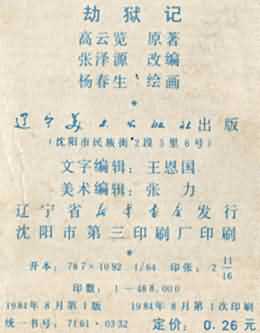 劫狱记
高云览 原著
张泽源 改编
杨春生 绘画
*
辽宁美术出版社出版
(沈阳市民族街2段5里6号)
文字编辑：王恩国
美术编辑：张力
辽宁省新华书店发行
沈阳市第三印刷厂印刷
*
开本：787×1092 1/64 印张：2 11/16
印数：1—468,000
1984年8月第1版 1984年8月第1次印刷
统一书号：7161·0332 定价：0.26元